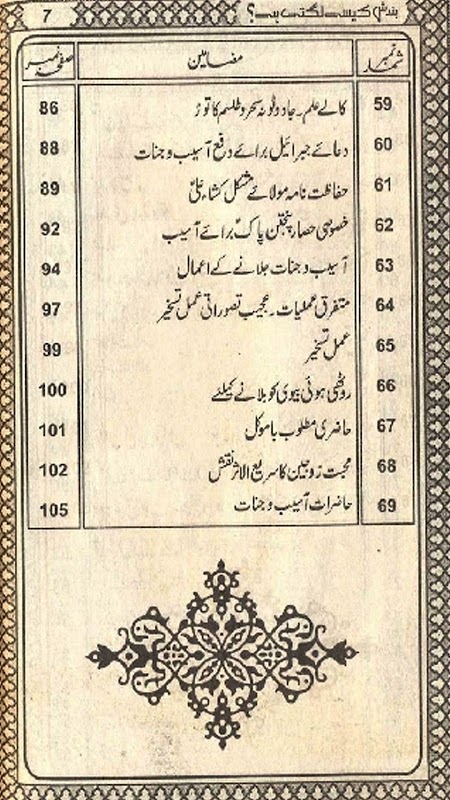 بندش کیسے لگتی ہے؟ 7
نمبر شمار مضامین صفحہ نمبر
59 کالے علم۔ جادو ٹونہ سحر و طلسم کا توڑ 86
60 دعائے جبرائیل برائے دفع آسیب و جنات 88
61 حفاظت نامہ مولائے مشکل کشاء علیؑ 89
62 خصوصی حصار پنجتن پاکؑ برائے آسیب 92
63 آسیب و جنات جلانے کے اعمال 94
64 متفرق عملیات۔ عجیب تصوراتی عمل تسخیر 97
65 عمل تسخیر 99
66 روٹھی ہوئی بیوی کو بلانے کیلئے 100
67 حاضری مطلوب با موکل 101
68 محبت زوجین کا سریع الاثر نقش 102
69 حاضرات آسیب و جنات 105